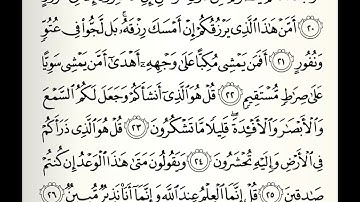 أَمَّنْ هَٰذَا ٱلَّذِى يَرْزُقُكُمْ إِنْ أَمْسَكَ رِزْقَهُۥ ۚ بَل لَّجُّوا۟ فِى عُتُوٍّ
وَنُفُورٍ ٢١ أَفَمَن يَمْشِى مُكِبًّا عَلَىٰ وَجْهِهِۦٓ أَهْدَىٰٓ أَمَّن يَمْشِى سَوِيًّا
عَلَىٰ صِرَٰطٍ مُّسْتَقِيمٍ ٢٢ قُلْ هُوَ ٱلَّذِىٓ أَنشَأَكُمْ وَجَعَلَ لَكُمُ ٱلسَّمْعَ
وَٱلْأَبْصَٰرَ وَٱلْأَفْـِٔدَةَ ۖ قَلِيلًا مَّا تَشْكُرُونَ ٢٣ قُلْ هُوَ ٱلَّذِى ذَرَأَكُمْ
فِى ٱلْأَرْضِ وَإِلَيْهِ تُحْشَرُونَ ٢٤ وَيَقُولُونَ مَتَىٰ هَٰذَا ٱلْوَعْدُ إِن كُنتُمْ
صَٰدِقِينَ ٢٥ قُلْ إِنَّمَا ٱلْعِلْمُ عِندَ ٱللَّهِ وَإِنَّمَآ أَنَا۠ نَذِيرٌ مُّبِينٌ ٢٦